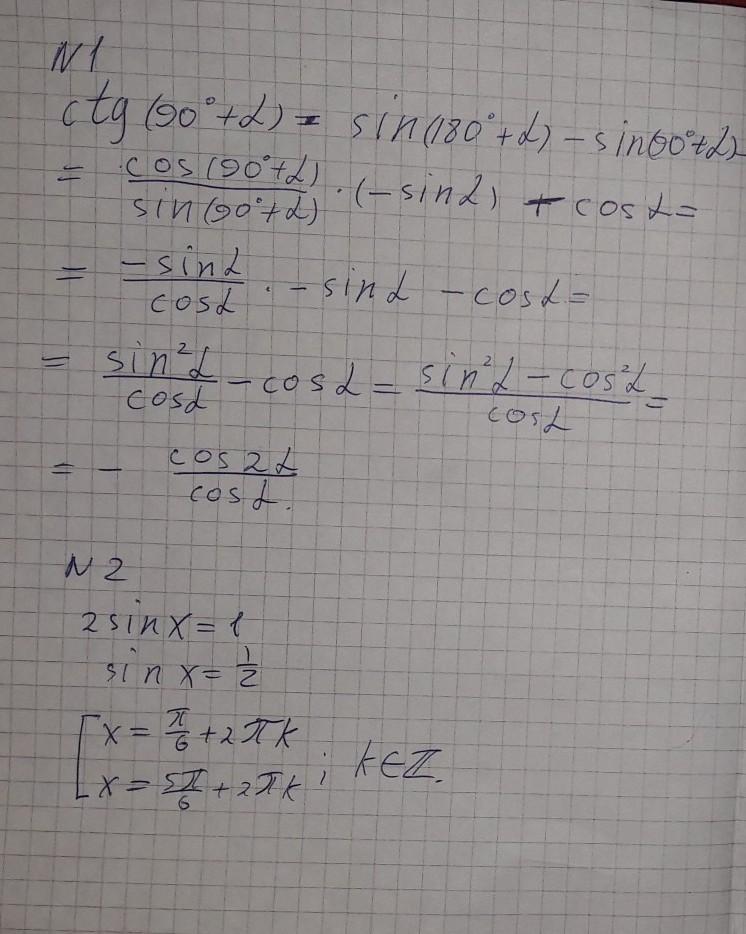 N1
ctg(90°+α) - sin(180°+α) - sin(90°+α)
= cos(90°+α)/sin(90°+α) · (-sinα) + cosα =
= -sinα/cosα · -sinα - cosα =
= sin²α/cosα - cosα = sin²α - cos²α/cosα =
= - cos2α/cosα.
N2
2sinx = 1
sin x = 1/2
[x = π/6 + 2πk
x = 5π/6 + 2πk; k∈ℤ.